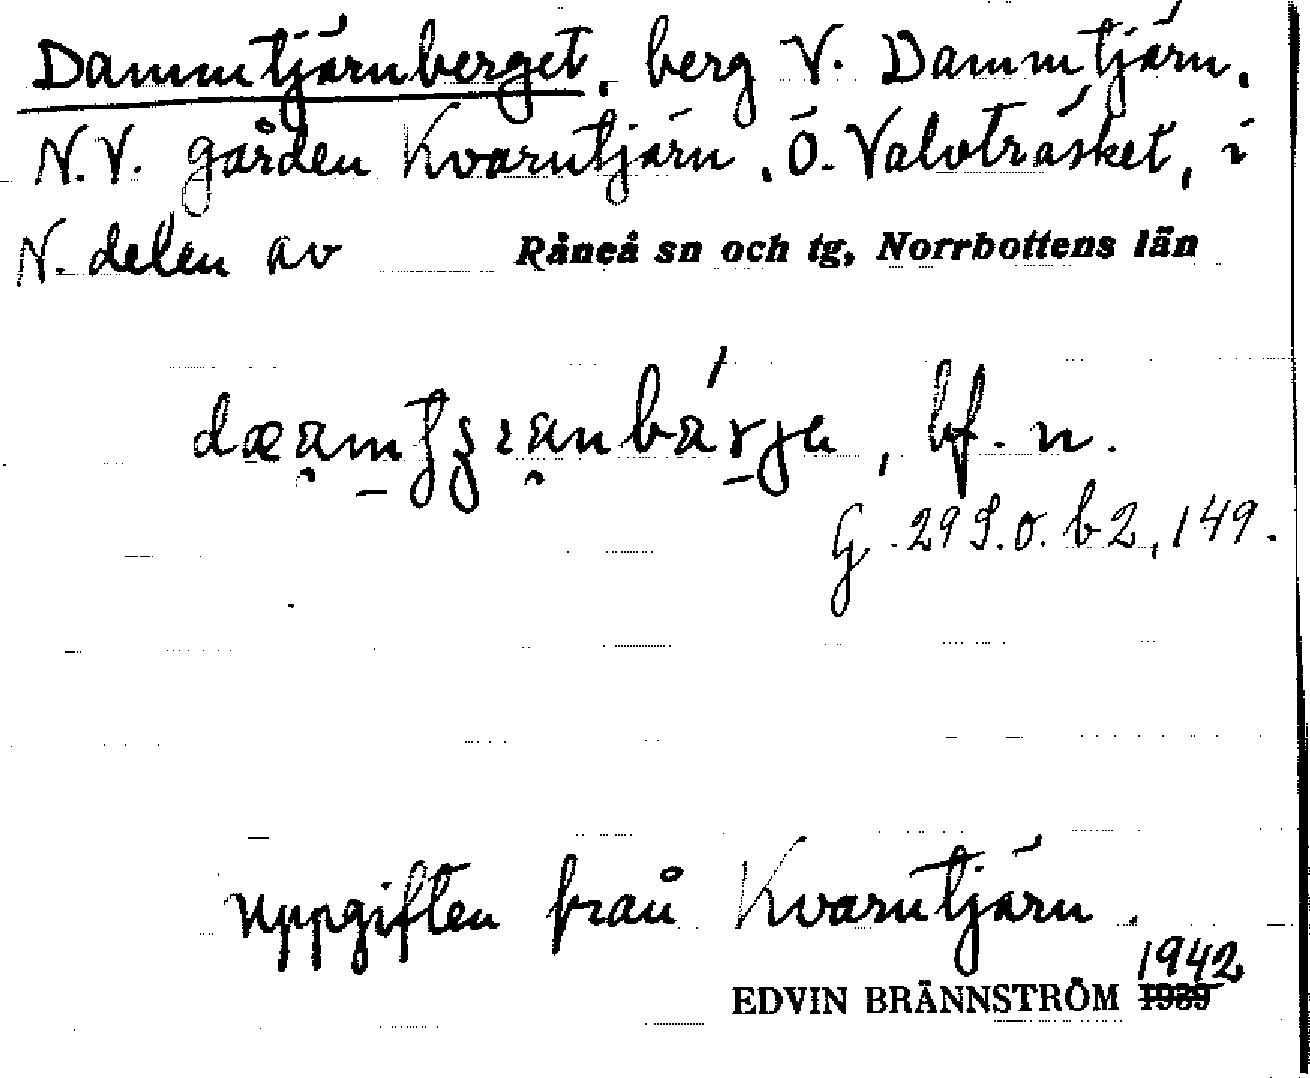 Dammtjärnberget, berg V. Dammtjärn,
N.V. gården Kvarntjärn, Ö. Valvträsket, i
N. delen av Råneå sn och tg, Norrbottens län
bf. n.
G. 29 S.o. b 2, 149.
Uppgiften från Kvarntjärn.
1942
EDVIN BRÄNNSTRÖM 1939